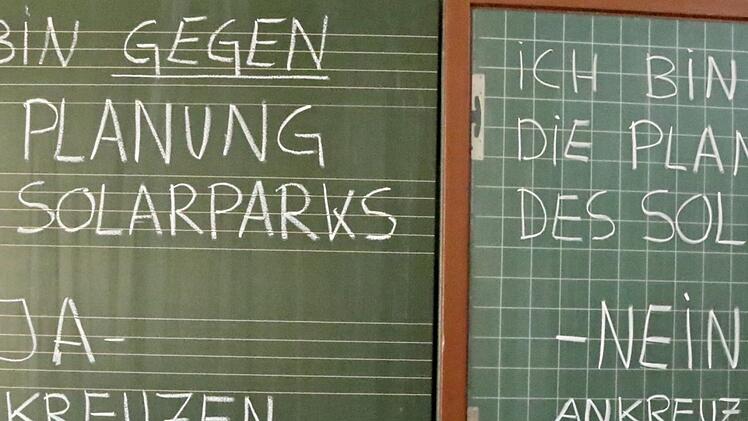 BiN GEGEN
PLANUNG
SOLARPARKS
JA-
KREUZEN
iCH BiN
DiE PLAN
DES SOL
-NEiN
ANKREUZ